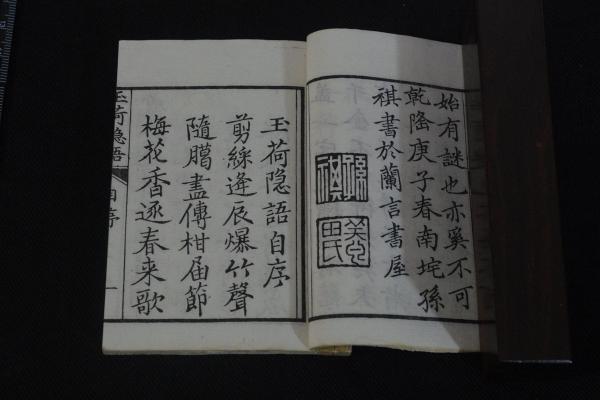 始有謎也亦奚不可
乾隆庚子春南垞孫
祺書於蘭言書屋
孫祺
玉荷隐語自序
剪綵逢辰爆竹聲
隨臈盡傳柑届節
梅花香逐春来歌
玉荷隐語
自序
一